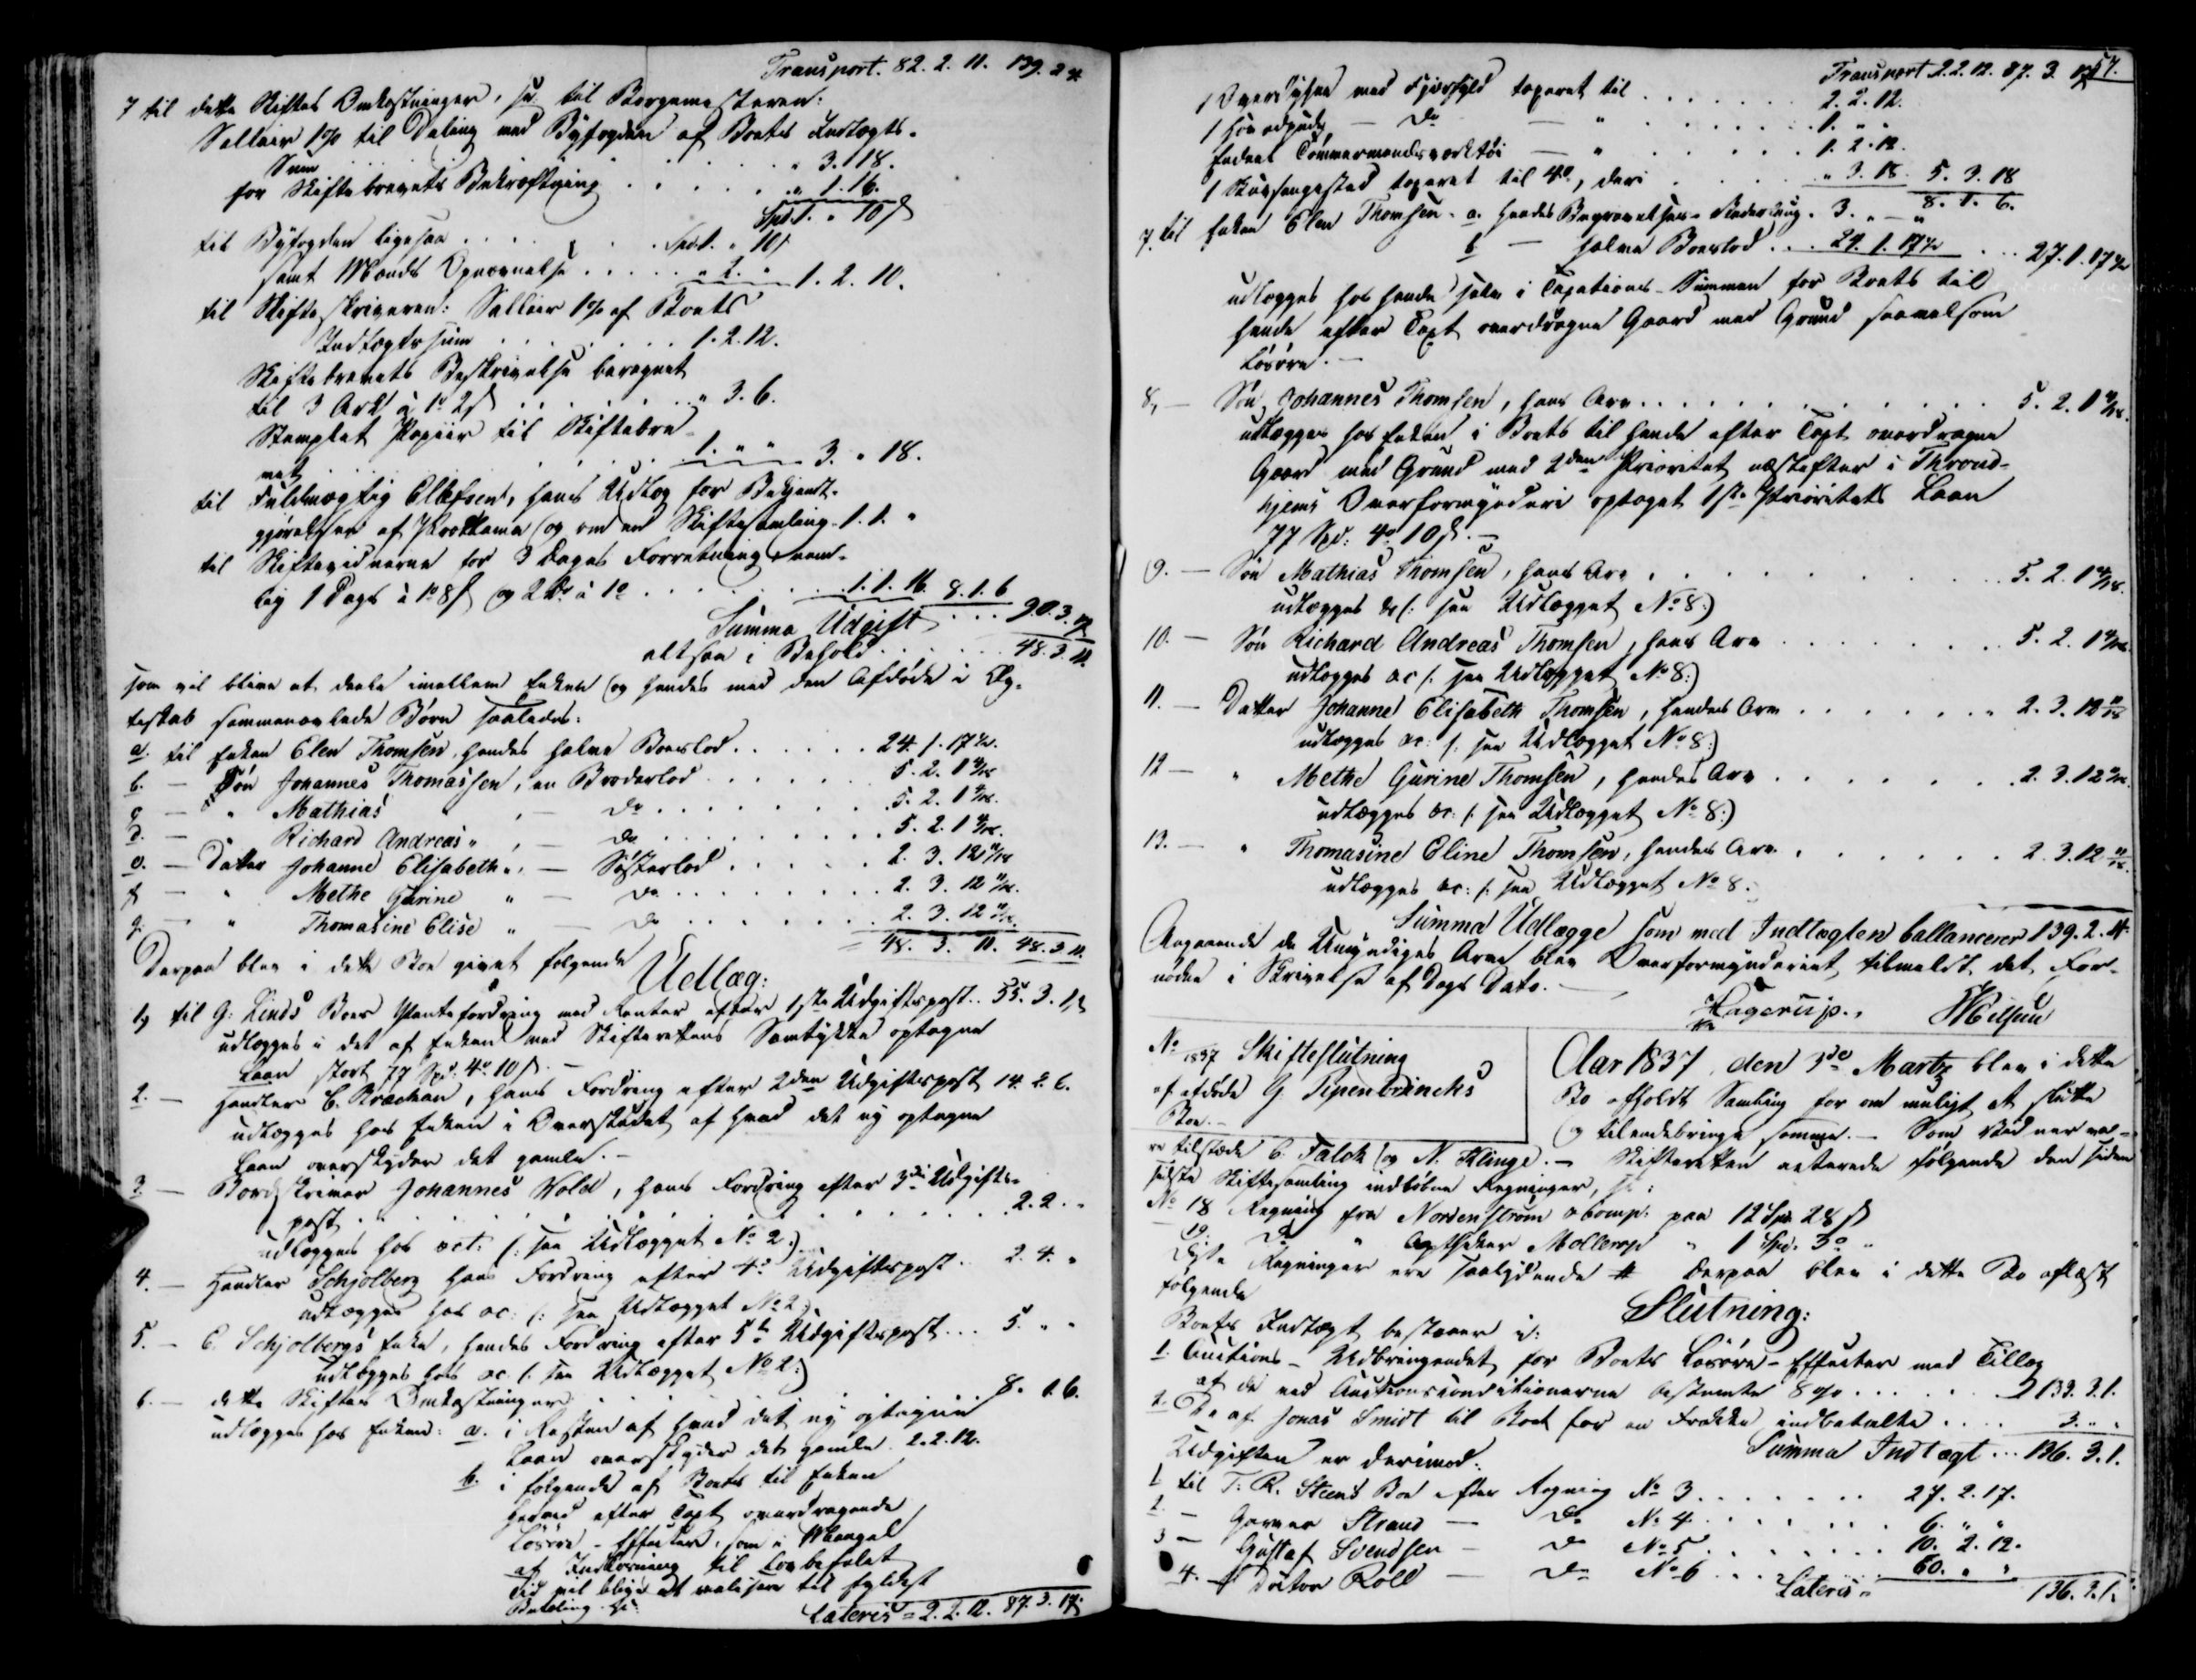 Transport. 82. 2. 11. 139. 2 4.
7 til dette Skiftes Omkostninger, sc. til Borgemesteren:
Sallair 1 % til Deling med Byfogden af Boets Indtægts-
Sum . . . . . . . . " 3. 18.
for Skiftebrevets Bekræftning . . . . . " 1. 16.
Spd. 1. " 10 ß
til Byfogden ligesaa . . . . . Spd. 1. " 10 ß
samt Mænds Opnævnelse . . . . " 2. " 1. 2. 10.
til Skifteskriveren: Sallair 1 % af Boets
Indtægtssum . . . . . . . 1. 2. 12.
Skiftebrevets Beskrivelse beregnet
til 3 Ark à 1 o 2 ß . . . . . . . " 3. 6.
Stemplet Papiir til Skiftebre-
vet . . . . . . 1. " " 3. " 18.
til Fuldmægtig Ellefsen, hans Udlæg for Bekjendt-
gjørelsen af Proklama og om en Skiftesamling . 1. 1. "
til Skiftevidnerne for 3 Dages Forretning, nem-
lig 1 Dags à 1 o 8 ß og 2 Do à 1 o . . . . . . 1. 1. 16. 8. 1. 6
Summa Udgift . . . 90. 3. 17
altsaa i Behold . . . . . . 48. 3. 11.
som vil blive at deele imellem Enken og hendes med den Afdøde i Æg-
teskab sammenavlede Børn saaledes:
a. til Enken Elen Thomsen, hendes halve Boeslod . . . . . . 24. 1. 17 ½.
b. — Søn Johannes Thomassen, en Broderlod . . . . . . 5. 2. 1
c — " Mathias " , — Do . . . . . . . . 5. 2. 1
d. — Richard Andreas " , — Do . . . . . . . . 5. 2. 1
e. — Datter Johanne Elisabeth " , — Søsterlod . . . . . 2. 3. 12
f — " Methe Gurine " — Do . . . . . . . . 2. 3. 12
g. — " Thomasine Elise " — Do . . . . . . . 2. 3. 12
= 48. 3. 11. 48. 3. 11.
Derpaa blev i dette Boe givet følgende
Udlæg:
1, til G: Linds Boes Pantefordring med Renter efter 1ste Udgiftspost . . 55. 3. 1
udlægges i det af Enken med Skifterettens Samtykke optagne
Laan stort 77 Spd. 4 o 10 ß. —
2. — Handler C. Brækan, hans Fordring efter 2den Udgiftspost 14. 2. 6.
udlægges hos Enken i Overskudet af hvad det ny optagne
Laan overskyder det gamle. —
3. — Bordskriver Johannes Wold, hans Fordring efter 3die Udgifts-
post . . . . . . . . . . . . . . . 2. 2. "
udlægges hos ect: /: see Udlægget No 2:)
4. — Handler Schjolberg hans Fordring efter 4de Udgiftspost . . 2. 4. "
udlægges hos &c: /: see Udlægget No 2.
5. — C. Schjolbergs Enke, hendes Fordring efter 5te Udgiftspost . . . 5. " "
udlægges hos &c /: see Udlægget No 2:)
6. — dette Skiftes Omkostninger . . . . . . . . 8. 1. 6.
udlægges hos Enken: a. i Resten af hvad det ny optagne
Laan overskyder det gamle. 2. 2. 12.
b. i følgende af Boets til Enken
herved efter Taxt overdragende
Løsøre-Effecter, som i Mangel
af Indløsning til lovbefalet
Tid vil blive at realisere til fyldest
Betaling. sc:
Lateris = 2. 2. 12. 87. 3. 17
57.
Transport 2. 2. 12. 87. 3. 17
1 Overdyne med Fjærfyld taxeret til . . . . . . . 2. 2. 12.
1 Hovedpude — Do — " . . . . . . . 1. " "
Endeel Tømmermandsværktøi — " . . . . . . 1. 2. 12.
1 Skuvsengested taxeret til 4 o, deri . . . . . . " 3. 18. 5. 3. 18
8. 1. 6.
7. til Enken Elen Thomsen. a. hendes Begravelses-Vederlaug . 3. " — "
b — halve Boeslod . . . 24. 1. 17 ½ . . . 27. 1. 17 ½
udlægges hos hende selv i Taxations-Summen for Boets til
hende efter Taxt overdragne Gaard med Grund saavelsom
Løsøre. —
8, — Søn Johannes Thomsen, hans Arv . . . . . . . . . . . 5. 2. 1
udlægges hos Enken i Boets til hende efter Taxt overdragne
Gaard med Grund med 2den Prioritet næstefter i Thrond-
hjems Overformynderi optaget 1ste Prioritets Laan
77 Spd: 4 o 10 ß. —
9. — Søn Mathias Thomsen, hans Arv . . . . . . . . . 5. 2. 1
udlægges &c /: see Udlægget No 8:)
10. — Søn Richard Andreas Thomsen, hans Arv . . . . . . . 5. 2. 1
udlægges &c /: see Udlægget No 8:)
11. — Datter Johanne Elisabeth Thomsen, hendes Arv . . . . . . . 2. 3. 12
udlægges &c: /: see Udlægget No 8:)
12 — " Methe Gurine Thomsen, hendes Arv . . . . . . . 2. 3. 12
udlægges &c: /: see Udlægget No 8:)
13. — " Thomasine Eline Thomsen, hendes Arv . . . . . . . 2. 3. 12
udlægges &c: /: see Udlægget No 8.
Summa Udlægge som med Indtægten ballancerer 139. 2. 4.
Angaaende de Umyndiges Arv blev Overformynderiet tilmeldt det For-
nødne i Skrivelse af Dags Dato. —
Hagerup. Nilsen
No /1837 Skifteslutning
af afdøde G. Pipenbrincks
Boe. —
Aar 1837, den 3de Martz blev i dette
Bo afholdt Samling for om muligt at slutte
og tilendebringe samme. — Som Vidner va-
re tilstæde C. Falck og N. Klinge. — Skifteretten noterede følgende den siden
sidste Skiftesamling indløbne Regninger, sc:
No 18 Regning fra Nordenstrøm & Comp: paa 12 Spd 28 ß
19. Do " Apotheker Møllerop " 1 Spd. 3 o "
Disse Regninger ere saalydende # Derpaa blev i dette Bo aflæst
følgende
Slutning:
Boets Indtægt bestaaer i:
1. Auctions-Udbringendet for Boets Løsøre-Effecter med Tillæg
af de ved Auctionsconditionerne bestemte 8 % . . . . . . . 133. 3. 1.
2. De af Jonas Smidt til Boet for en Frakke indbetalte . . . . 3. " "
Summa Indtægt . . . 136. 3. 1.
Udgiften er derimod:
1 til T. R. Steens Boe efter Regning No 3 . . . . . . . 27. 2. 17.
2. — Garver Strand — Do No 4 . . . . . . . 6. " "
3 — Gustaf Svendsen — Do No 5 . . . . . . . 10. 2. 12.
4. — Doctor Roll — Do No 6 . . . . . . . 60. " "
Lateris = 136. 3. 1.